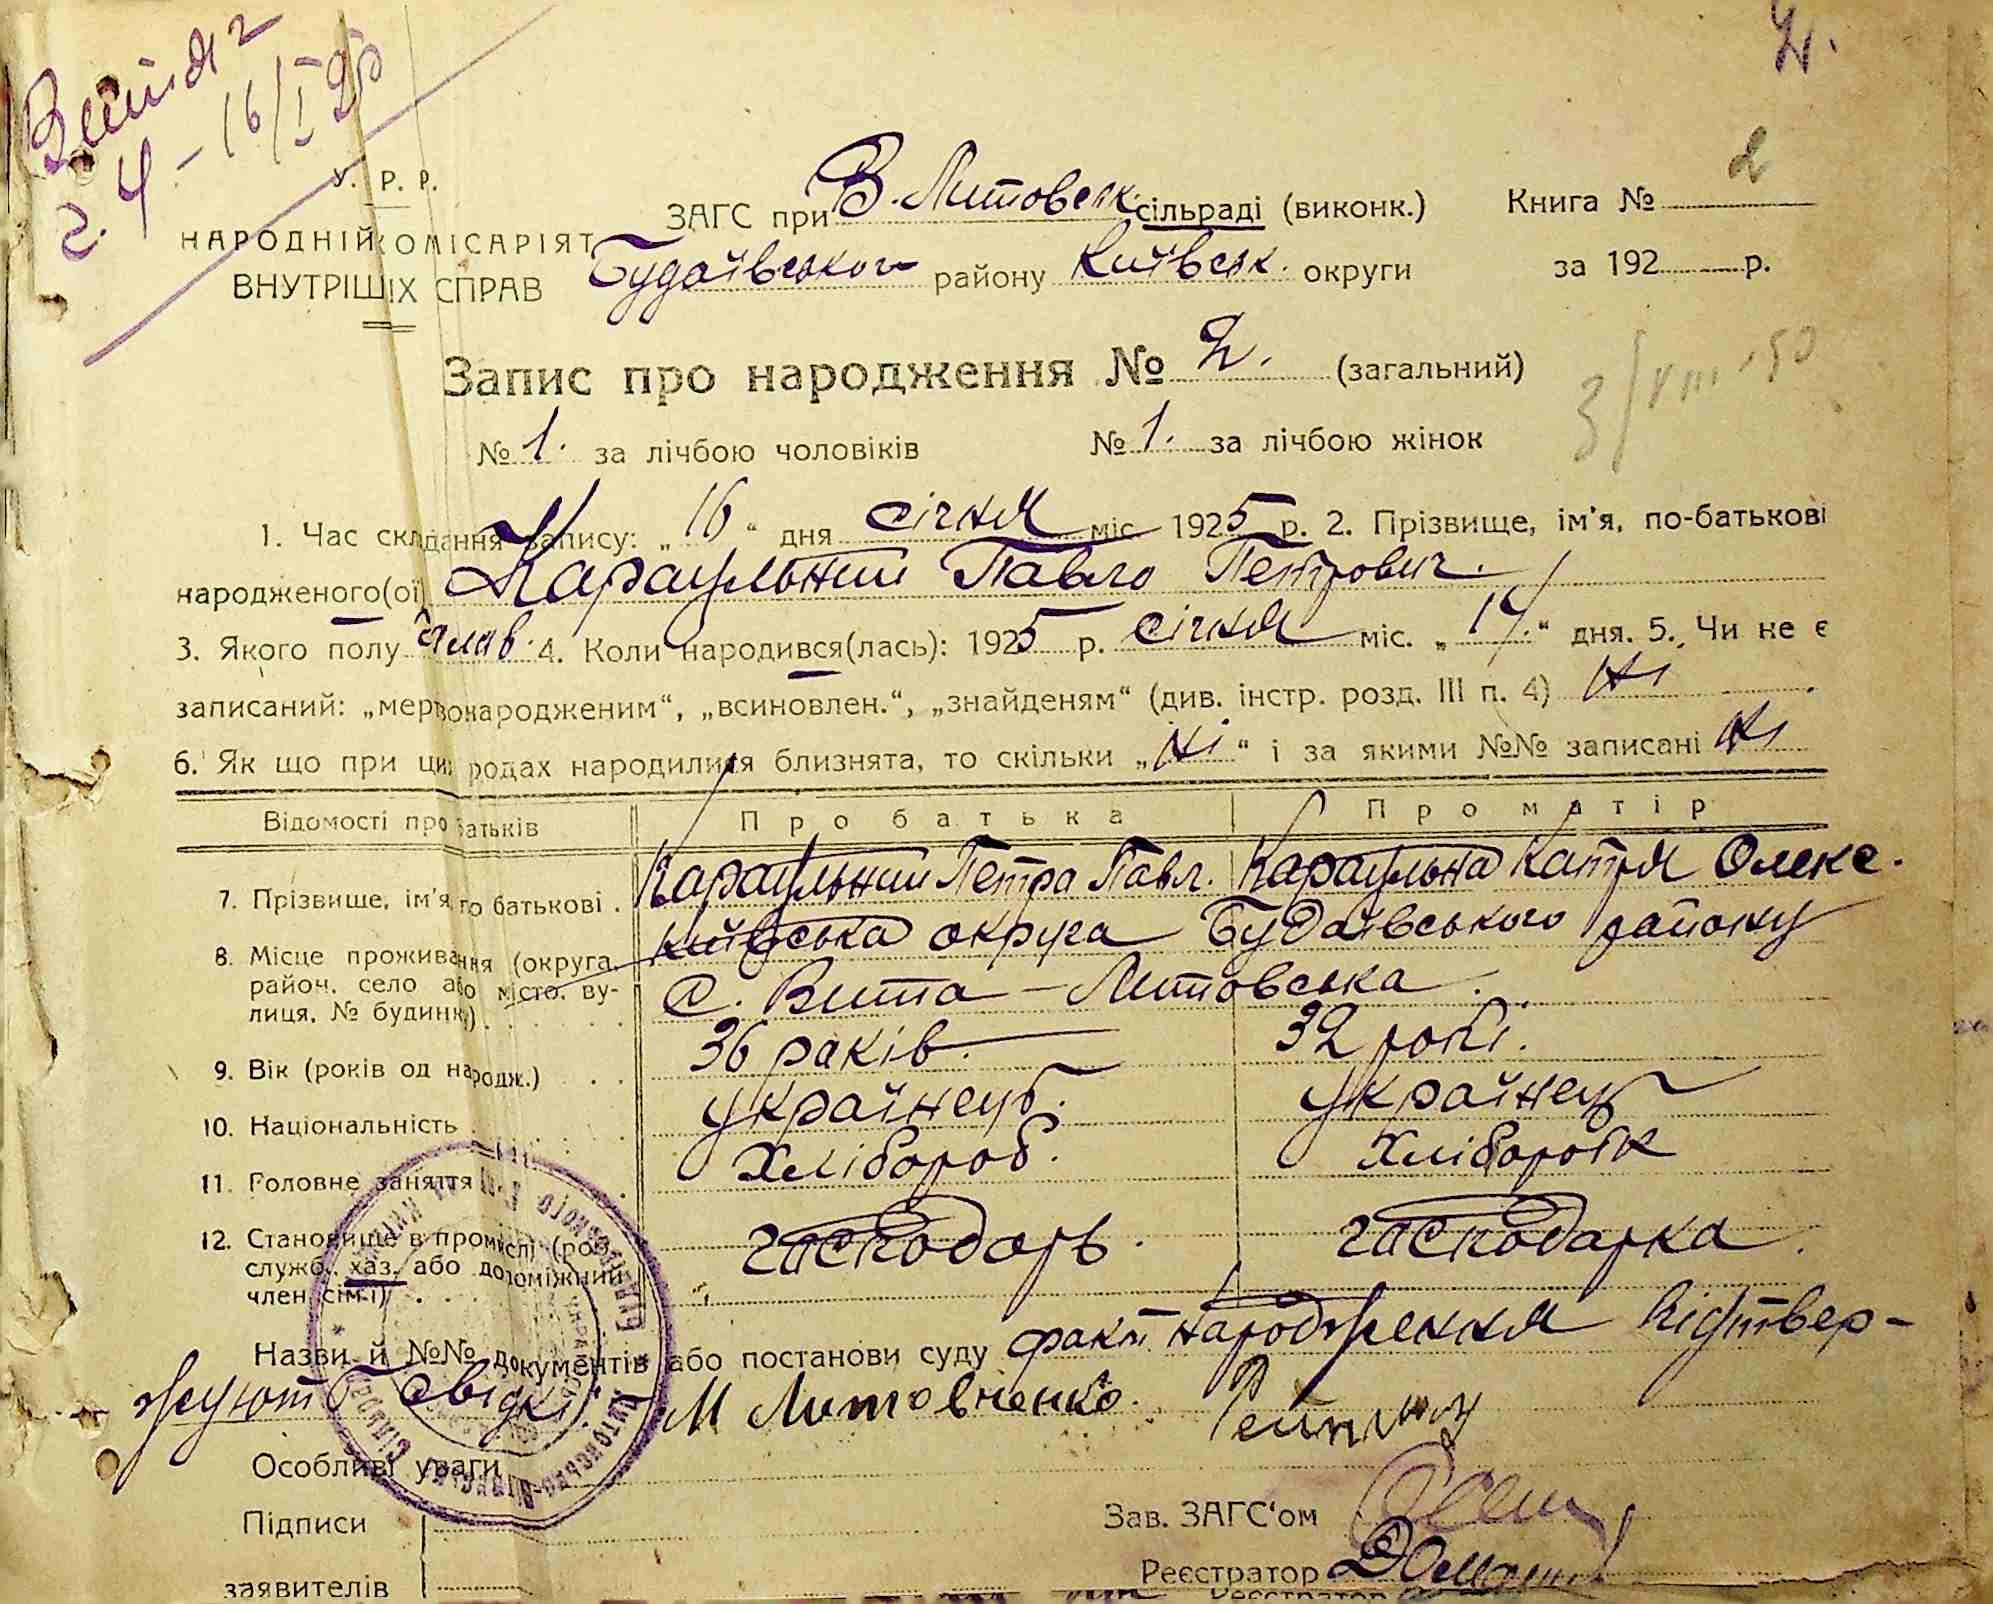 2.
16/I
2
У. Р. Р.
НАРОДНІЙ КОМІСАРІЯТ
ВНУТРІШІХ СПРАВ
ЗАГС при В. Литовськ. сільраді (виконк.) Книга №
Будаївського району Київськ. округи за 192 р.
Запис про народження № 2. (загальний)
3/VIII 50
№ 1. за лічбою чоловіків № 1. за лічбою жінок
1. Час складання запису: „16“ дня січня міс 1925 р. 2. Прізвище, ім'я, по-батькові
народженого(ої) Караульний Павло Петрович.
3. Якого полу 4. Коли народився(лась): 1925 р. січня міс. „14.“ дня. 5. Чи не є
записаний: „мервонародженим“, „всиновлен.“, „знайденям“ (див. інстр. розд. III п. 4) Ні
6. Як що при цих родах народилися близнята, то скільки „Ні“ і за якими №№ записані Ні
Відомості про батьків Про батька Про матір
7. Прізвище, ім'я по батькові . Караульний Петра Павл. Караульна Катря Олекс.
8. Місце проживання (округа, Київська округа Будаївського району
район, село або місто, ву-
лиця, № будинк.) с. Вита-Литовська.
9. Вік (років од народж.) 36 раків. 32 рокі.
10. Національність українець. українец
11. Головне заняття Хлібороб. Хліборобк
12. Становище в промислі (роб., господарь. господарка.
служб., хаз. або допоміжний
член сім'ї)
Назви й №№ документів або постанови суду факт народження підтвер-
жують свідкі: М Литовченко.
Особливі уваги
Підписи Зав. ЗАГС'ом
заявителів Реєстратор
Реєстратор